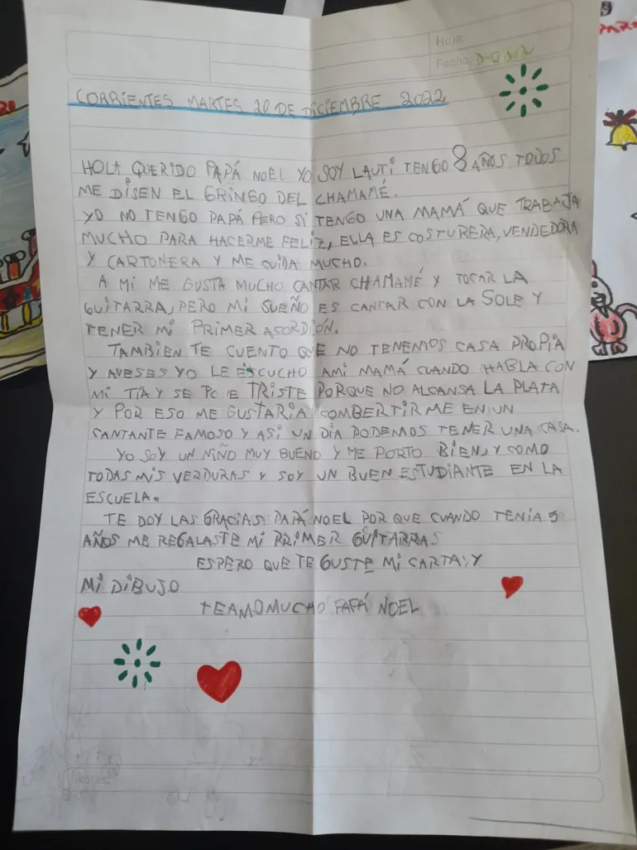 Hoja:
Fecha:
CORRIENTES MARTES 20 DE DICIEMBRE 2022
HOLA QUERIDO PAPÁ NOEL YO SOY LAUTI TENGO 8 AÑOS TODOS
ME DISEN EL GRINGO DEL CHAMAMÉ.
YO NO TENGO PAPÁ PERO SÍ TENGO UNA MAMÁ QUE TRABAJA
MUCHO PARA HACERME FELIZ, ELLA ES COSTURERA, VENDEDORA
Y CARTONERA Y ME CUIDA MUCHO.
A MI ME GUSTA MUCHO CANTAR CHAMAMÉ Y TOCAR LA
GUITARRA, PERO MI SUEÑO ES CANTAR CON LA SOLE Y
TENER MI PRIMER ACORDIÓN.
TAMBIEN TE CUENTO QUE NO TENEMOS CASA PROPIA
Y AVESES YO LE ESCUCHO AMI MAMÁ CUANDO HABLA CON
MI TIA Y SE PO E TRISTE PORQUE NO ALCANSA LA PLATA
Y POR ESO ME GUSTARIA COMBERTIRME EN UN
CANTANTE FAMOSO Y ASÍ UN DÍA PODEMOS TENER UNA CASA.
YO SOY UN NIÑO MUY BUENO Y ME PORTO BIEN, Y COMO
TODAS MIS VERDURAS Y SOY UN BUEN ESTUDIANTE EN LA
ESCUELA.
TE DOY LAS GRACIAS PAPÁ NOEL POR QUE CUANDO TENIA 5
AÑOS ME REGALASTE MI PRIMER GUITARRAS
ESPERO QUE TE GUSTE MI CARTA Y
MI DIBUJO
TEAMOMUCHO PAPÁ NOEL